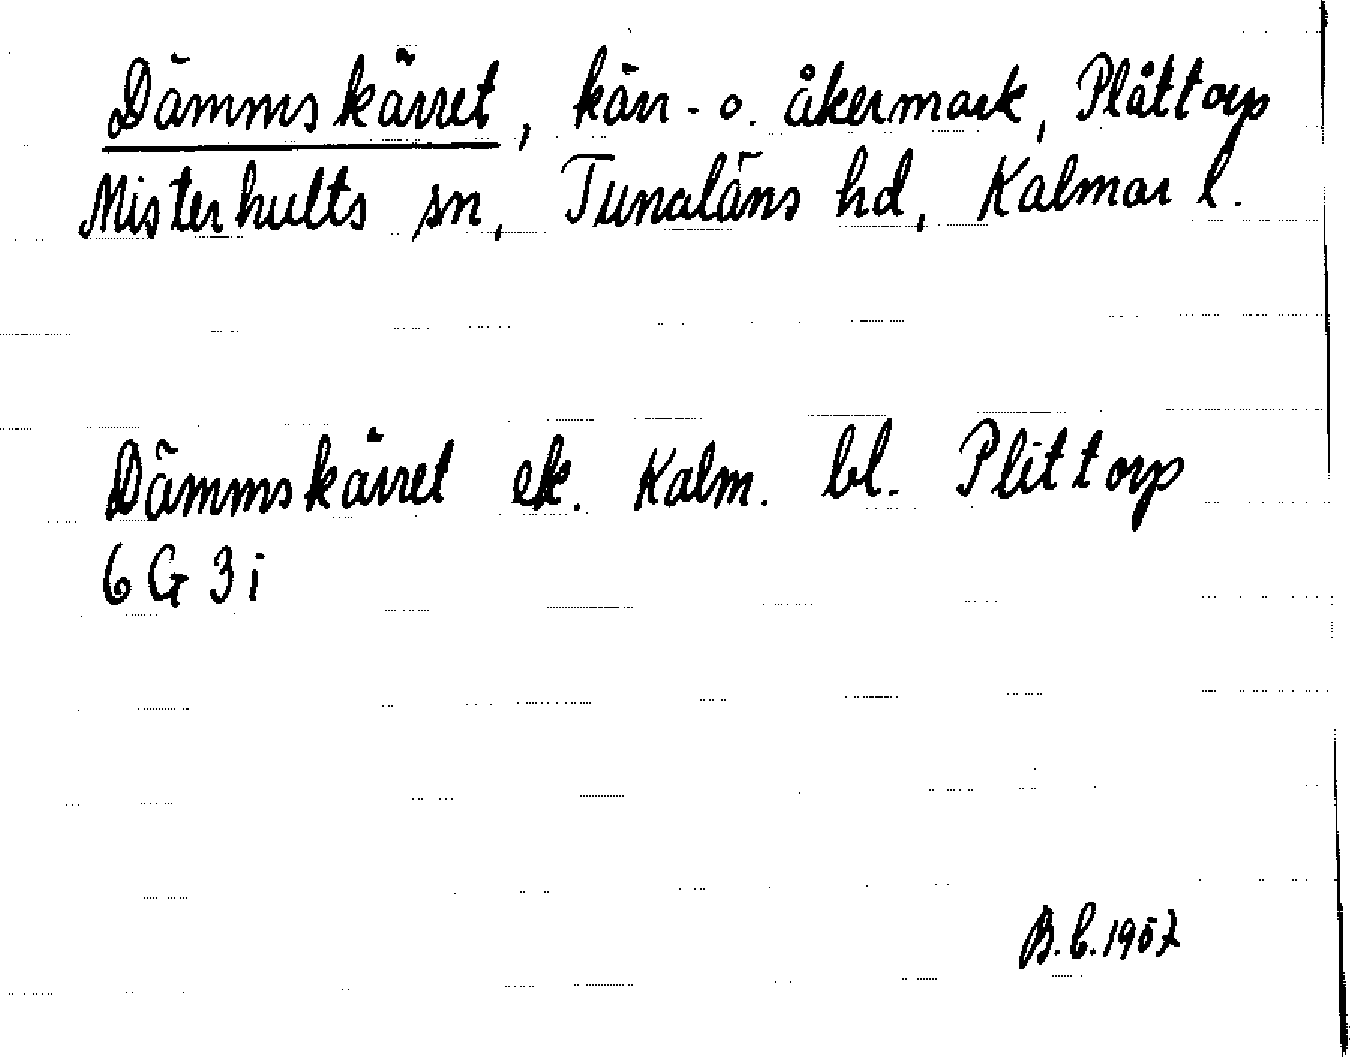 Dämmskärret, kärr- o. åkermark, Plåttorp
Misterhults sn, Tunaläns hd, Kalmar l.
Dämmskärret ek. Kalm. bl. Plittorp
6 G 3 i